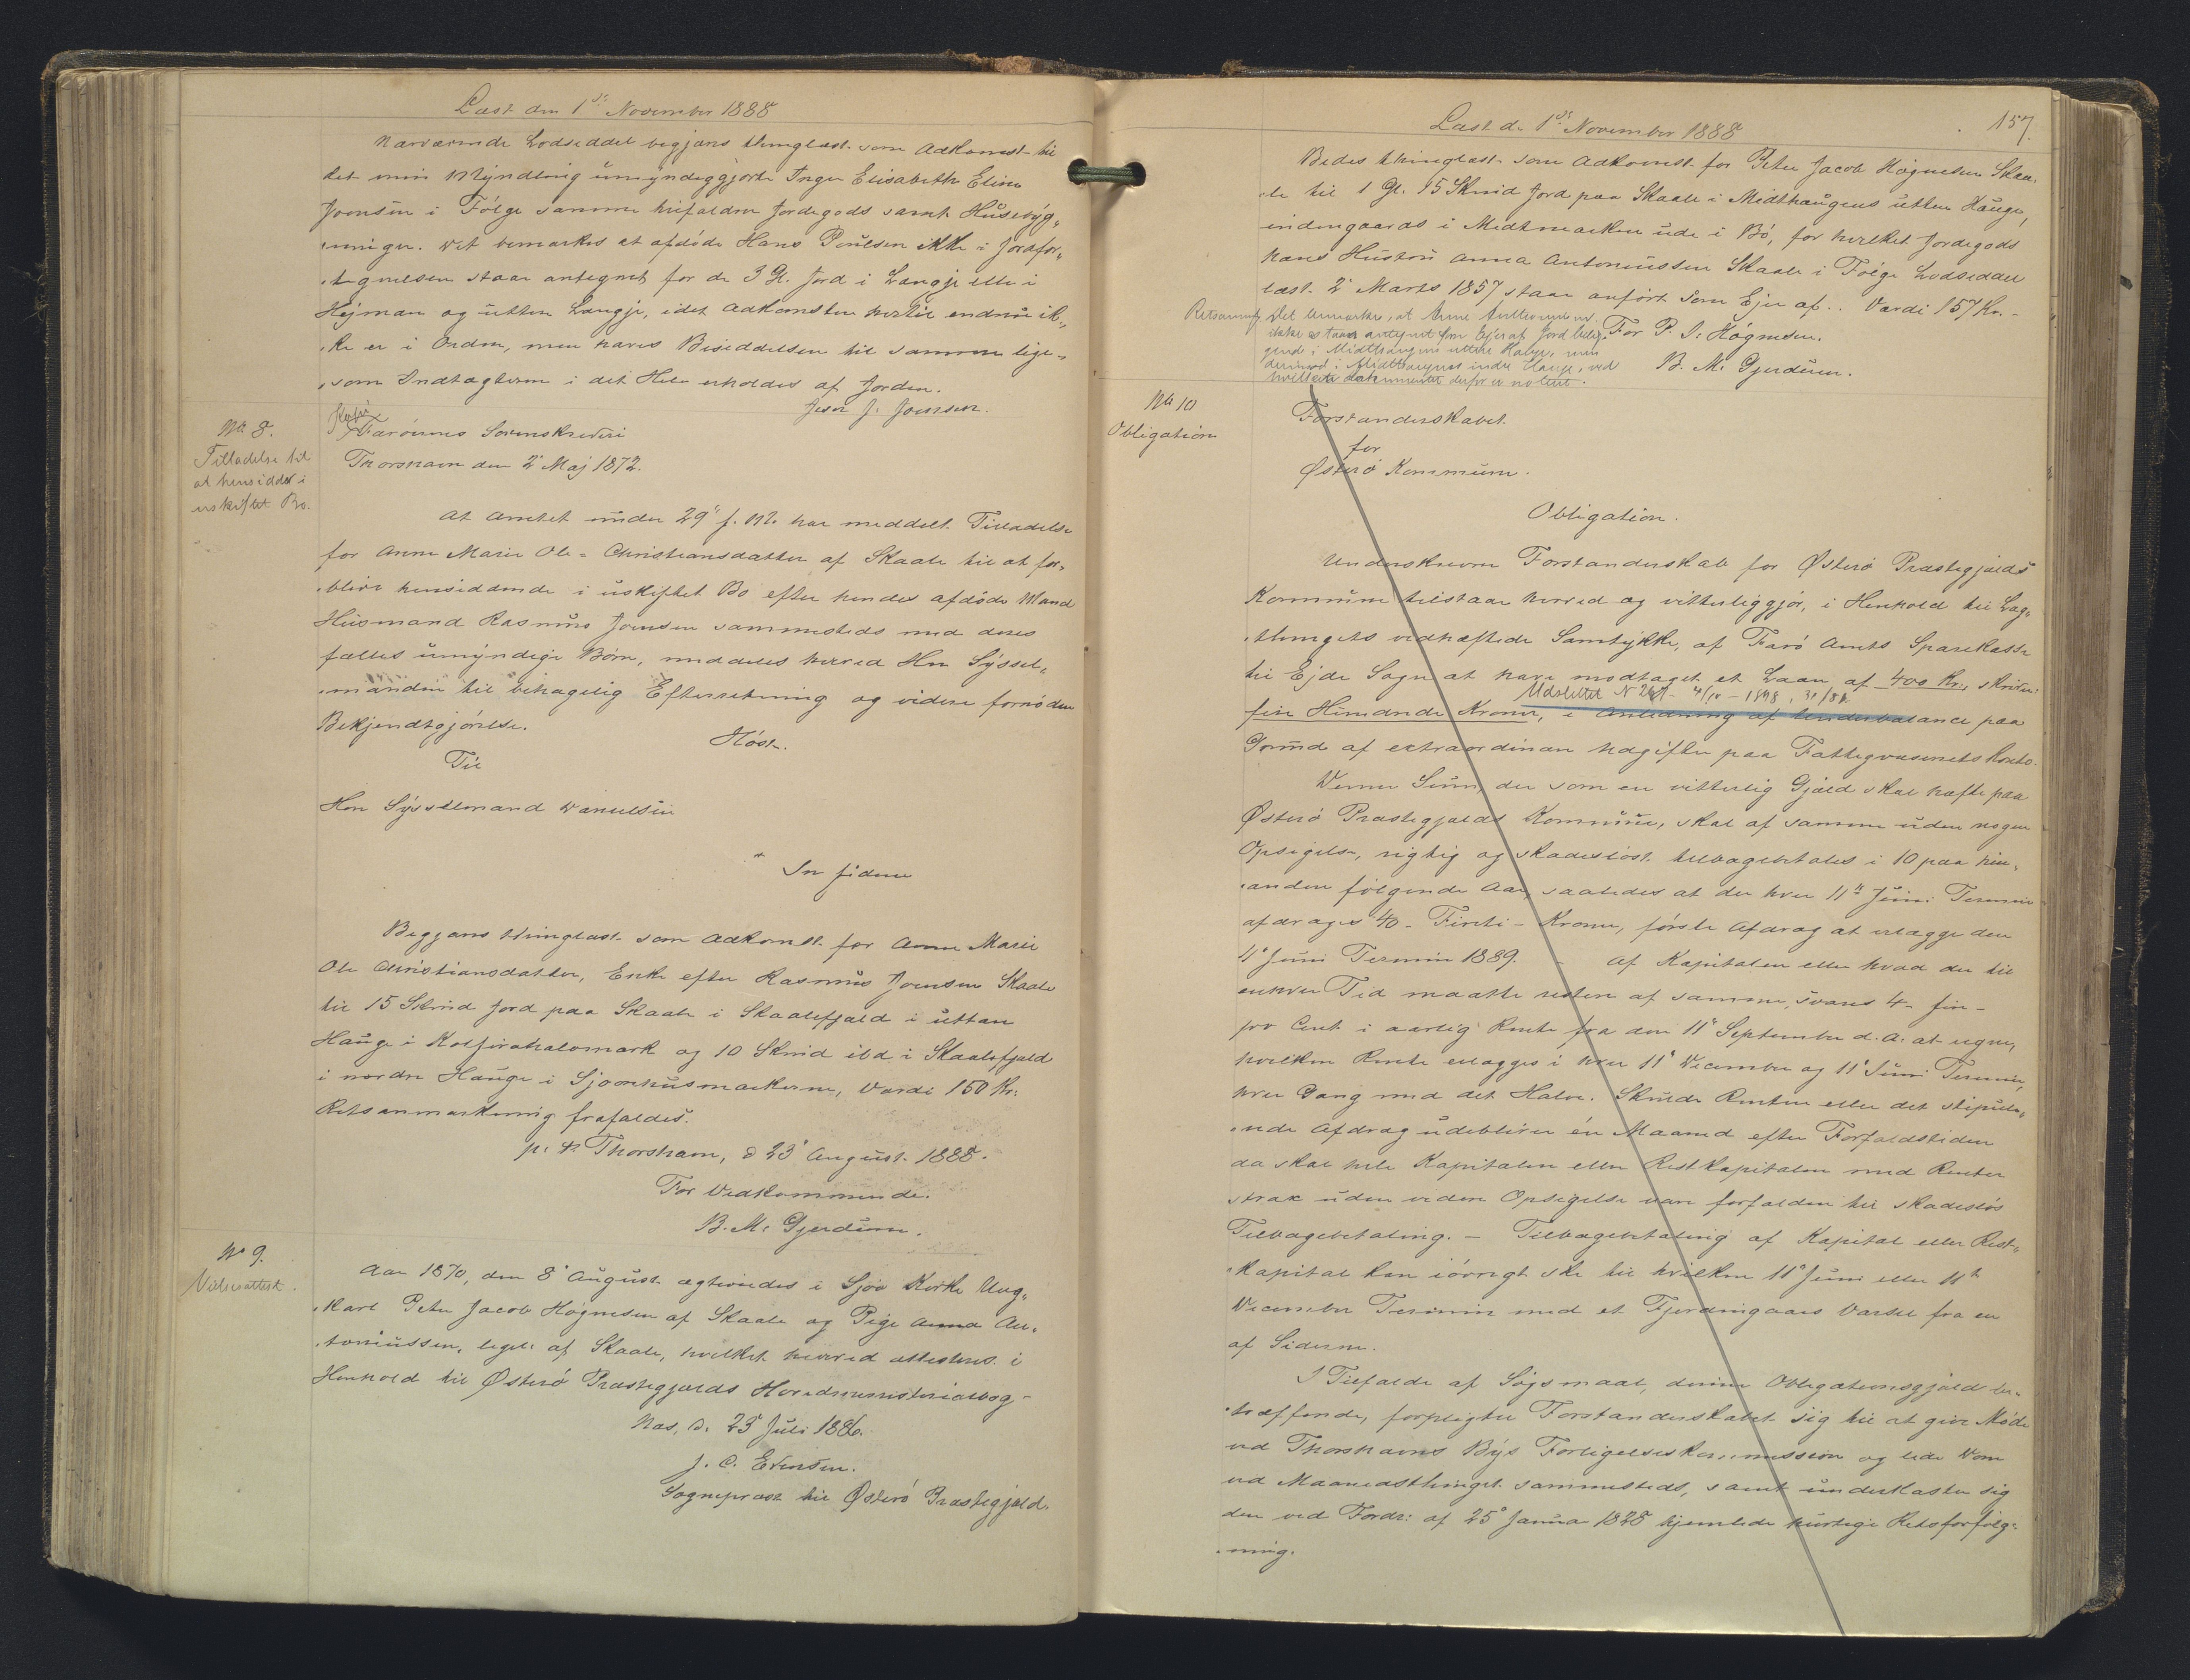 Læst den 1ste November 1888
Nærværende Lodseddel begjæres thinglæst som Adkomst til
det min Myndling umyndiggjorte Inger Elisabeth Eline
Joensen i Følge samme tilfaldne Jordegods samt Husebyg„
„ninger. Det bemærkes at afdøde Hans Poulsen ikke i Jordfor„
„tegnelsen staar antegnet for de 3 Gl. Jord i Langje elle i
Hejman og utten Langje, idet Adkomsten hertil endnu ik„
„ke er i Orden, men haves Besiddelsen til samme lige„
„som Indtægterne i det Hele erholdes af Jorden.
Joen J. Joensen.
No 8.
Tilladelse til
at hensidde i
uskiftet Bo.
Færøernes Sorenskriveri
Thorshavn den 2' Maj 1872.
At Amtet under 29' f. M. har meddelt Tilladelse
for Anne Marie Ole-Christiansdatter af Skaale til at for„
„blive hensiddende i uskiftet Bo efter hendes afdøde Mand
Huusmand Rasmus Joensen sammesteds med deres
fælles umyndige Børn, meddeles herved Hr. Syssel„
„manden til behagelig Efterretning og videre fornøden
Bekjendtgjørelse.
Høst.
Til
Hr. Sysselmand Danielsen
In fidem
Begjæres thinglæst som Adkomst for Anne Marie
Ole Christiansdatter, Enke efter Rasmus Joensen Skaale
til 15 Skind Jord paa Skaale i Skaalefjald i uttan
Hauge i Kolfirahalsmark og 10 Skind ibd i Skaalefjald
i nordre Hauge i Sjoarhusmarkerne, Værdi 150 Kr.
Retsanmærkning frafaldes.
p. t. Thorshavn, d 23' August 1888.
For Vedkommende.
B. M. Gjerdum.
No 9.
Vielsesattest.
Aar 1870, den 8' August ægteviedes i Sjov Kirke Ung„
„karl Peter Jacob Høgnesen af Skaale og Pige Anna An„
„toniussen, ligel. af Skaale, hvilket herved attesteres i
Henhold til Østerø Præstegjælds Hovedministerialbog-
Næs, d. 23' Juli 1886.
J. C. Evensen.
Sognepræst til Østerø Præstegjæld.
157.
Læst d. 1ste November 1888
Bedes thinglæst som Adkomst for Peter Jacob Høgnesen Skaa„
„le til 1 Gl. 15 Skind Jord paa Skaale i Midthaugens utten Hauge,
indengaards i Midtmarken ude i Bø, for hvilket Jordegods
hans Hustru Anna Antoniussen Skaale i Følge Lodseddel
læst 2' Marts 1857 staar anført som Ejer af.. Værdi 157 Kr.-
For P. J. Høgnesen.
B. M. Gjerdum.
Retsanm. Det bemærkes, at Anne Anttoniussen
ikke staar antegnet som Ejer af Jord belig„
gende i Midthaugens uttere Hauge, men
derimod i Midthaugens indre Hauge, ved
hvilket dokumentet derfor er noteret.
No 10
Obligation
Forstanderskabet
for
Østerø Kommune.
Obligation.
Underskrevne Forstanderskab for Østerø Præstegjælds
Kommune tilstaar herved og vitterliggjør, i Henhold til Lag„
„thingets vedhæftede Samtykke, af Færø Amts Sparekasse
til Ejde Sogn at have modtaget et Laan af 400 Kr., skriver:
Udslettet N 247 - 4/10 - 1898,
fire Hundrede Kroner, i Anledning af Underbalance paa
Grund af extraordinære Udgifter paa Fattigvæsenets Konto.
Denne Sum, der som en vitterlig Gjæld skal hæfte paa
Østerø Præstegjælds Kommune, skal af samme uden nogen
Opsigelse, rigtig og skadesløst tilbagebetales i 10 paa hin„
„anden følgende Aar, saaledes at der hver 11te Juni Termin
afdrages 40 - Firti - Kroner, første Afdrag at erlægge den
11' Juni Termin 1889. - Af Kapitalen eller hvad der til
enhver Tid maatte restere af samme, svares 4 - fire -
pro Cent i aarlig Rente fra den 11' September d. A. at regne,
hvilken Rente erlægges i hver 11' December og 11' Juni Termin,
hver Gang med det Halve. Skulde Renten eller det stipule„
„rede Afdrag udeblive én Maaned efter Forfaldstiden
da skal hele Kapitalen eller Restkapitalen med Renter
strax uden videre Opsigelse være forfalden til skadesløs
Tilbagebetaling. - Tilbagebetaling af Kapital eller Rest„
„kapital kan iøvrigt ske til hvilken 11' Juni eller 11te
December Termin med et Fjerdingaars Varsel fra en
af Siderne.
I Tilfælde af Søgsmaal, denne Obligationsgjæld be„
„træffende, forpligter Forstanderskabet sig til at give Møde
ved Thorshavns Bys Forligelseskommission og lide Dom
ved Maanedsthinget sammesteds, samt underkaster sig
den ved Fordr: af 25' Januar 1828 hjemlede hurtige Retsforfølg„
„ning.